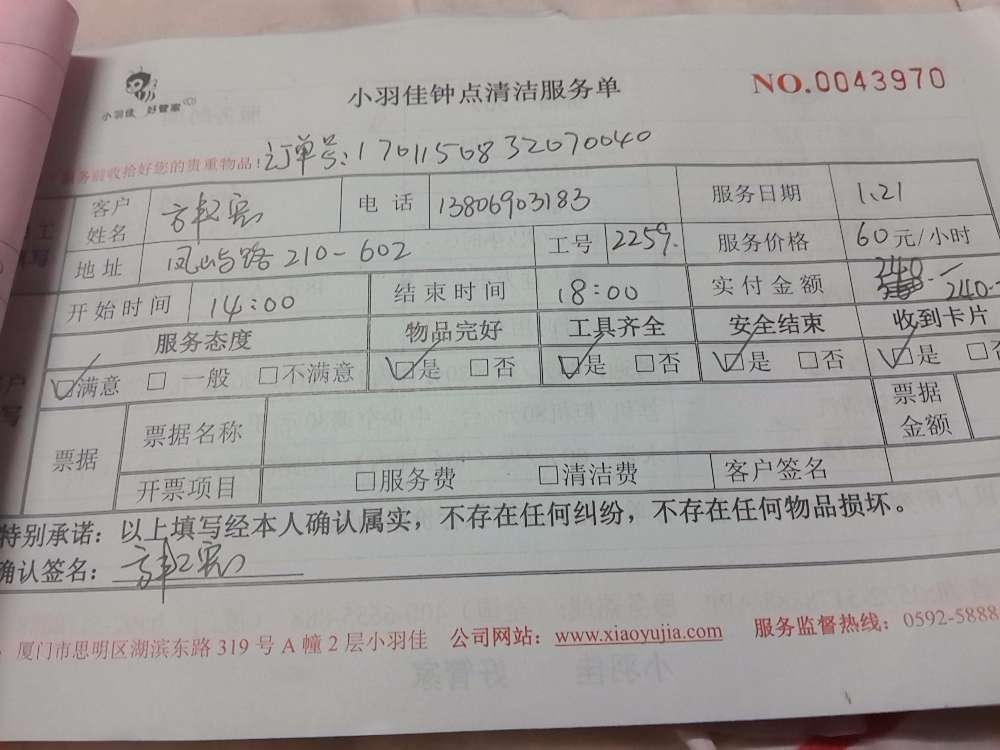 小羽佳 好管家
小羽佳钟点清洁服务单
NO.0043970
务前收拾好您的贵重物品! 订单号:17011508332070040
客户姓名 电话 13806903183 服务日期 1.21
地址 路210-602 工号 2259. 服务价格 60元/小时
开始时间 14:00 结束时间 18:00 实付金额 240.-
服务态度 物品完好 工具齐全 安全结束 收到卡片
☑满意 □一般 □不满意 ☑是 □否 ☑是 □否 ☑是 □否 ☑是 □否
票据 票据名称 票据金额
开票项目 □服务费 □清洁费 客户签名
特别承诺:以上填写经本人确认属实,不存在任何纠纷,不存在任何物品损坏。
确认签名:
厦门市思明区湖滨东路 319 号 A 幢 2 层小羽佳 公司网站:www.xiaoyujia.com 服务监督热线:0592-5888